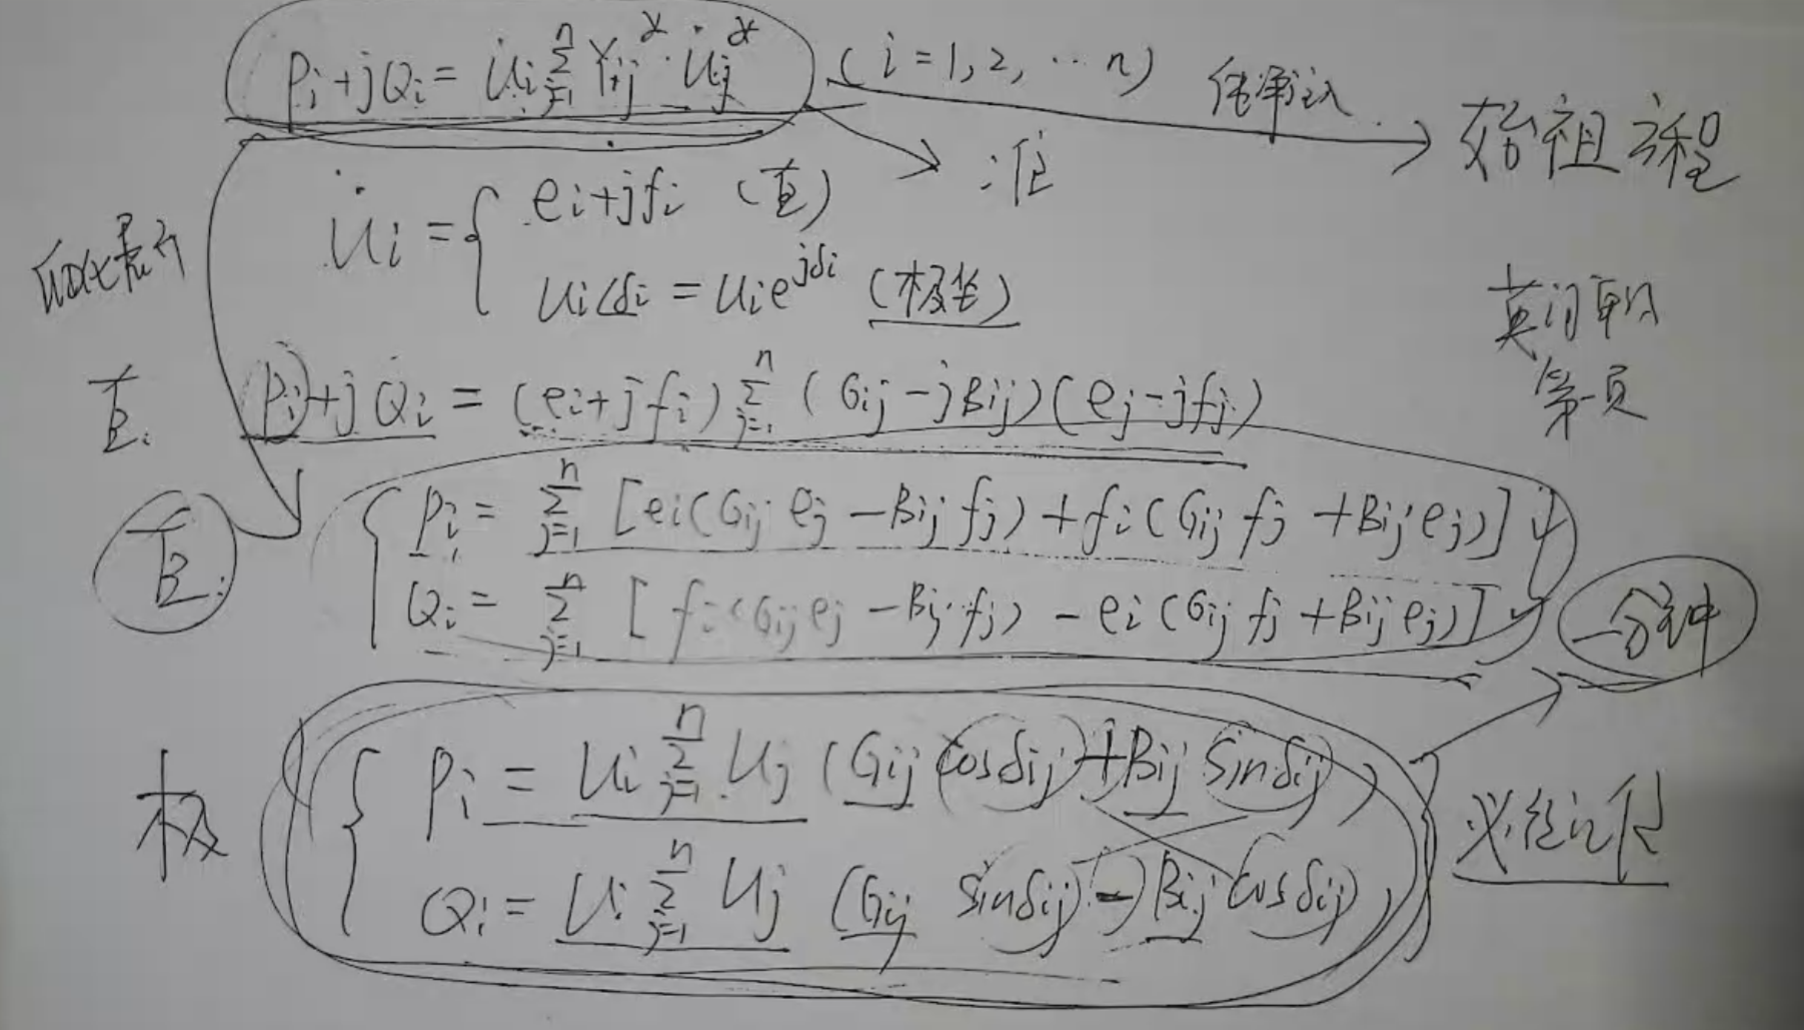 Pi+jQi = U̇i Σ(j=1→n) Yij* · U̇j* (i=1,2,…n)
始祖方程
U̇i = { ei+jfi (直)
Ui∠δi = Uie^jδi (极坐)
第一页
直: Pi+jQi = (ei+jfi) Σ(j=1→n) (Gij-jBij)(ej-jfj)
直: { Pi = Σ(j=1→n) [ei(Gij ej - Bij fj) + fi(Gij fj + Bij ej)]
Qi = Σ(j=1→n) [fi(Gij ej - Bij fj) - ei(Gij fj + Bij ej)]
一分钟
极 { Pi = Ui Σ(j=1→n) Uj (Gij cosδij + Bij sinδij)
Qi = Ui Σ(j=1→n) Uj (Gij sinδij - Bij cosδij)
必须记住